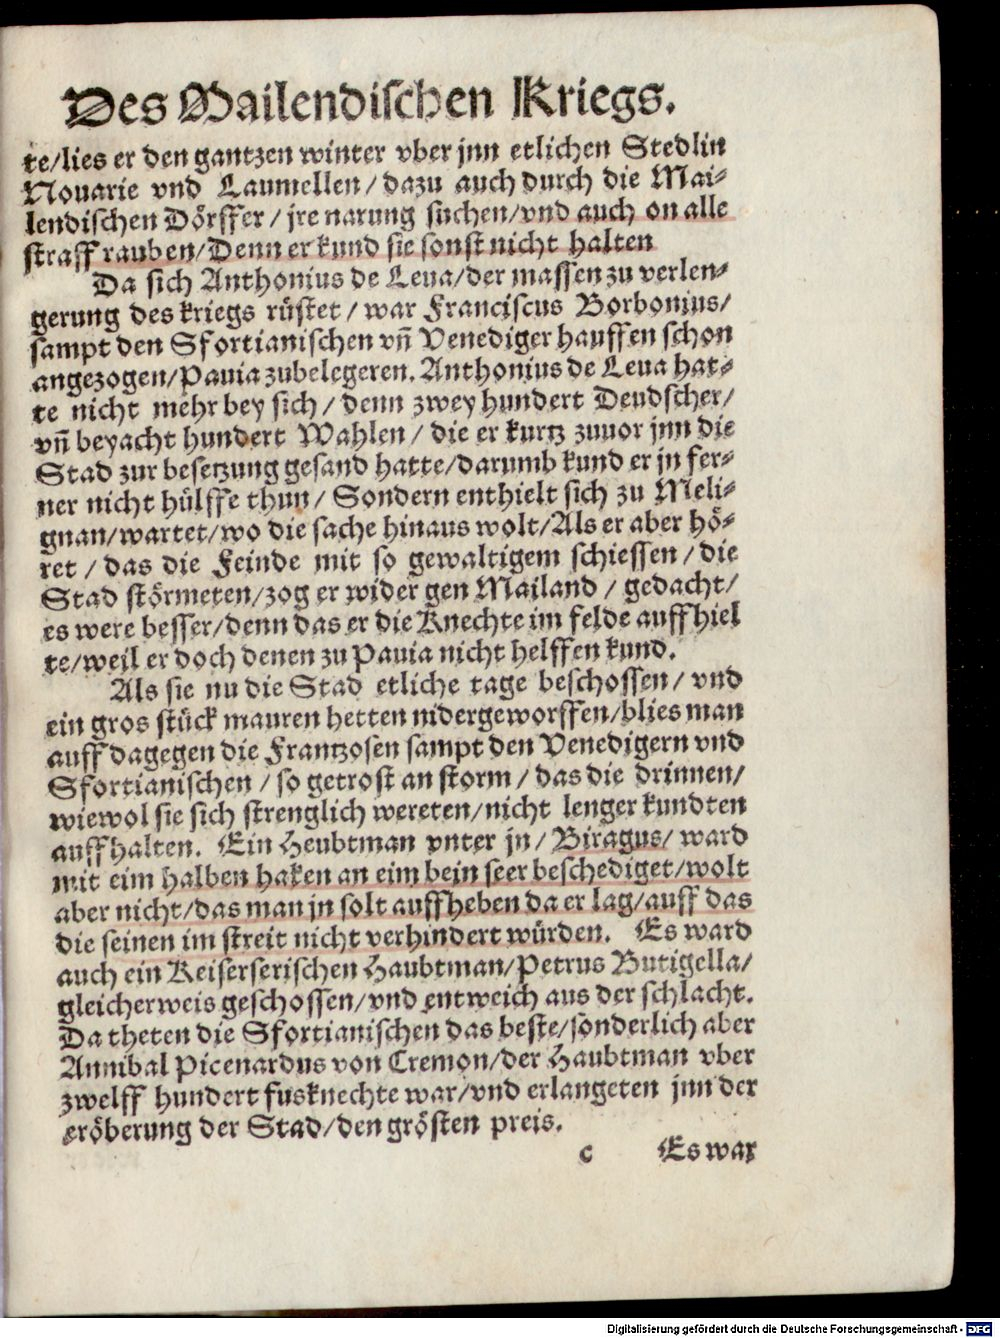 Des Mailendischen Kriegs.
te/lies er den gantzen winter vber jnn etlichen Stedlin
Nouarie vnd Laumellen/dazu auch durch die Mai-
lendischen Dörffer/jre narung suchen/vnd auch on alle
straff rauben/Denn er kund sie sonst nicht halten
Da sich Anthonius de Leua/der massen zu verlen-
gerung des kriegs rüstet/war Franciscus Borbonius/
sampt den Sfortianischen vn̄ Venediger hauffen schon
angezogen/Pauia zubelegeren. Anthonius de Leua hat-
te nicht mehr bey sich/denn zwey hundert Deudscher/
vn̄ bey acht hundert Wahlen/die er kurtz zuuor jnn die
Stad zur besetzung gesand hatte/darumb kund er jn fer-
ner nicht hülffe thun/Sondern enthielt sich zu Meli-
gnan/wartet/wo die sache hinaus wolt/Als er aber hö-
ret/das die Feinde mit so gewaltigem schiessen/die
Stad störmeten/zog er wider gen Mailand/gedacht/
es were besser/denn das er die Knechte im felde auffhiel
te/weil er doch denen zu Pauia nicht helffen kund.
Als sie nu die Stad etliche tage beschossen/vnd
ein gros stück mauren hetten nidergeworffen/blies man
auff dagegen die Frantzosen sampt den Venedigern vnd
Sfortianischen/so getrost an storm/das die drinnen/
wiewol sie sich strenglich wereten/nicht lenger kundten
auffhalten. Ein Heubtman vnter jn/Biragus/ward
mit eim halben haken an eim bein seer beschediget/wolt
aber nicht/das man jn solt auffheben da er lag/auff das
die seinen im streit nicht verhindert würden. Es ward
auch ein Keiserserischen Haubtman/Petrus Butigella/
gleicherweis geschossen/vnd entweich aus der schlacht.
Da theten die Sfortianischen das beste/sonderlich aber
Annibal Picenardus von Cremon/der Haubtman vber
zwelff hundert fusknechte war/vnd erlangeten jnn der
eröberung der Stad/den grösten preis.
c Es war
Digitalisierung gefördert durch die Deutsche Forschungsgemeinschaft - DFG